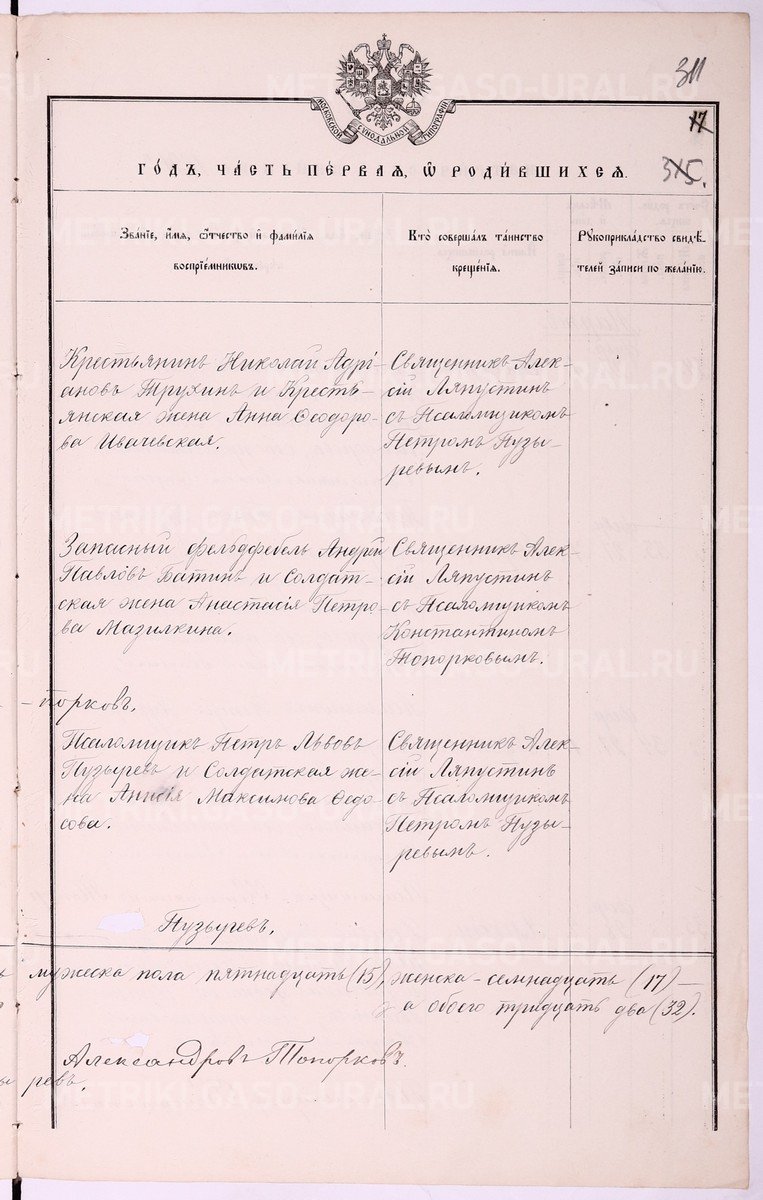 311
17
МОСКОВСКОЙ СѴНОДАЛЬНОЙ ТИПОГРАФІИ
ГОДЪ, ЧАСТЬ ПЕРВАЯ, Ѡ РОДИВШИХСЯ.
315.
Званіе, имя, ѻтчество и фамилія
воспріемниковъ.
Кто совершалъ таинство
крещенія.
Рукоприкладство свидѣ-
телей записи по желанію.
Крестьянинъ Николай Адрі-
ановъ Трухинъ и Кресть-
янская жена Анна Ѳеодоро-
ва Ивачевская.
Священникъ Алек-
сій Ляпустинъ
съ Псаломщикомъ
Петромъ Пузы-
ревымъ.
Запасный фельдфебель Андрей
Павловъ Батинъ и Солдат-
ская жена Анастасія Петро-
ва Мазилкина.
Священникъ Алек-
сій Ляпустинъ
съ Псаломщикомъ
Константиномъ
Топорковымъ.
-порковъ.
Псаломщикъ Петръ Львовъ
Пузыревъ и Солдатская же-
на Анисія Максимова Ѳедо-
сова.
Священникъ Алек-
сій Ляпустинъ
съ Псаломщикомъ
Петромъ Пузы-
ревымъ.
Пузыревъ.
мужеска пола пятнадцать (15), женска - семнадцать (17) —
а обоего тридцать два (32).
Александровъ Топорковъ.
ревъ.
METRIKI.GASO-URAL.RU